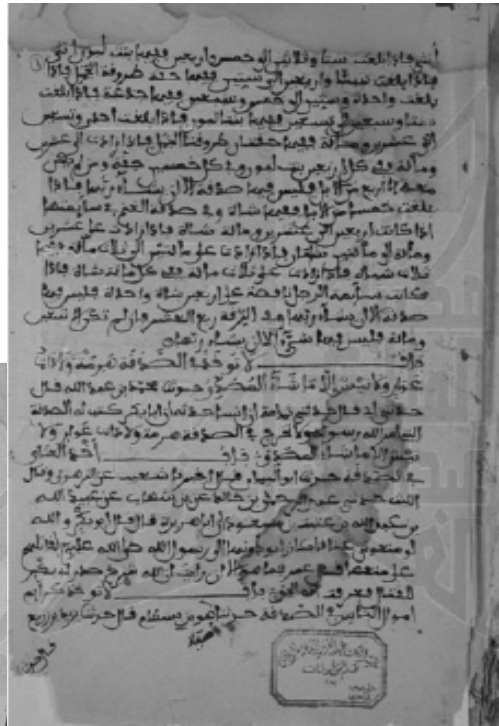 أنثى فإذا بلغت ستا وثلاثين إلى خمس وأربعين ففيها بنت لبون أنثى
فإذا بلغت ستا وأربعين إلى ستين ففيها حقة طروقة الجمل فإذا
بلغت واحدة وستين إلى خمس وسبعين ففيها جذعة فإذا بلغت
ستا وسبعين إلى تسعين ففيها بنتا لبون فإذا بلغت إحدى وتسعين
إلى عشرين ومائة ففيها حقتان طروقتا الجمل فإذا زادت على عشرين
ومائة ففي كل أربعين بنت لبون وفي كل خمسين حقة ومن لم يكن
معه إلا أربع من الإبل فليس فيها صدقة إلا أن يشاء ربها فإذا
بلغت خمسا من الإبل ففيها شاة وفي صدقة الغنم في سائمتها
إذا كانت أربعين إلى عشرين ومائة شاة فإذا زادت على عشرين
ومائة إلى مائتين شاتان فإذا زادت على مائتين إلى ثلاث مائة ففيها
ثلاث شياه فإذا زادت على ثلاث مائة ففي كل مائة شاة فإذا
كانت سائمة الرجل ناقصة عن أربعين شاة واحدة فليس فيها
صدقة إلا أن يشاء ربها وفي الرقة ربع العشر فإن لم تكن إلا تسعين
ومائة فليس فيها شيء إلا أن يشاء ربها
باب لا تؤخذ في الصدقة هرمة ولا ذات
عوار ولا تيس إلا ما شاء المصدق حدثنا محمد بن عبد الله قال
حدثني أبي قال حدثني ثمامة أن أنسا حدثه أن أبا بكر كتب له التي
أمر الله رسوله ولا يخرج في الصدقة هرمة ولا ذات عوار ولا
تيس إلا ما شاء المصدق باب أخذ العناق
في الصدقة حدثنا أبو اليمان قال أخبرنا شعيب عن الزهري وقال
الليث حدثني عبد الرحمن بن خالد عن ابن شهاب عن عبيد الله
بن عبد الله بن عتبة بن مسعود أن أبا هريرة قال قال أبو بكر والله
لو منعوني عناقا كانوا يؤدونها إلى رسول الله صلى الله عليه لقاتلتهم
على منعها قال عمر فما هو إلا أن رأيت أن الله شرح صدر أبي بكر
للقتال فعرفت أنه الحق باب لا تؤخذ كرائم
أموال الناس في الصدقة حدثنا أمية بن بسطام قال حدثنا يزيد بن زريع